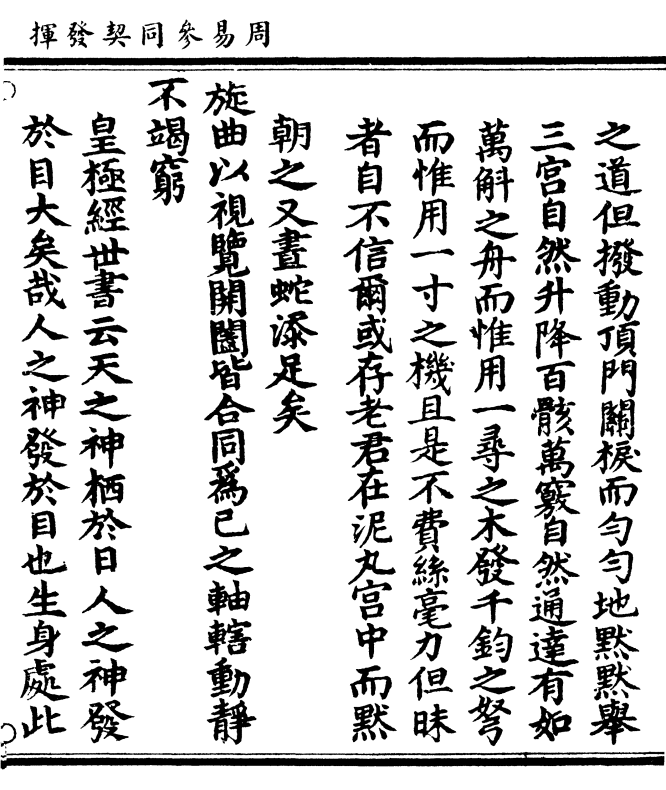 周易參同契發揮
之道但撥動頂門關棙而勻勻地黙黙舉
三宮自然升降百骸萬竅自然通達有如
萬斛之舟而惟用一尋之木發千鈞之弩
而惟用一寸之機且是不費絲毫力但昧
者自不信爾或存老君在泥丸宮中而黙
朝之又畫蛇添足矣
旋曲以視覽開闔皆合同爲己之軸轄動靜
不竭窮
皇極經世書云天之神栖於日人之神發
於目大矣哉人之神發於目也生身處此